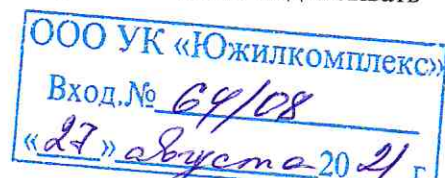 ООО УК «Южилкомплекс»
Вход.№ 64/08
«27» августа 2021 г